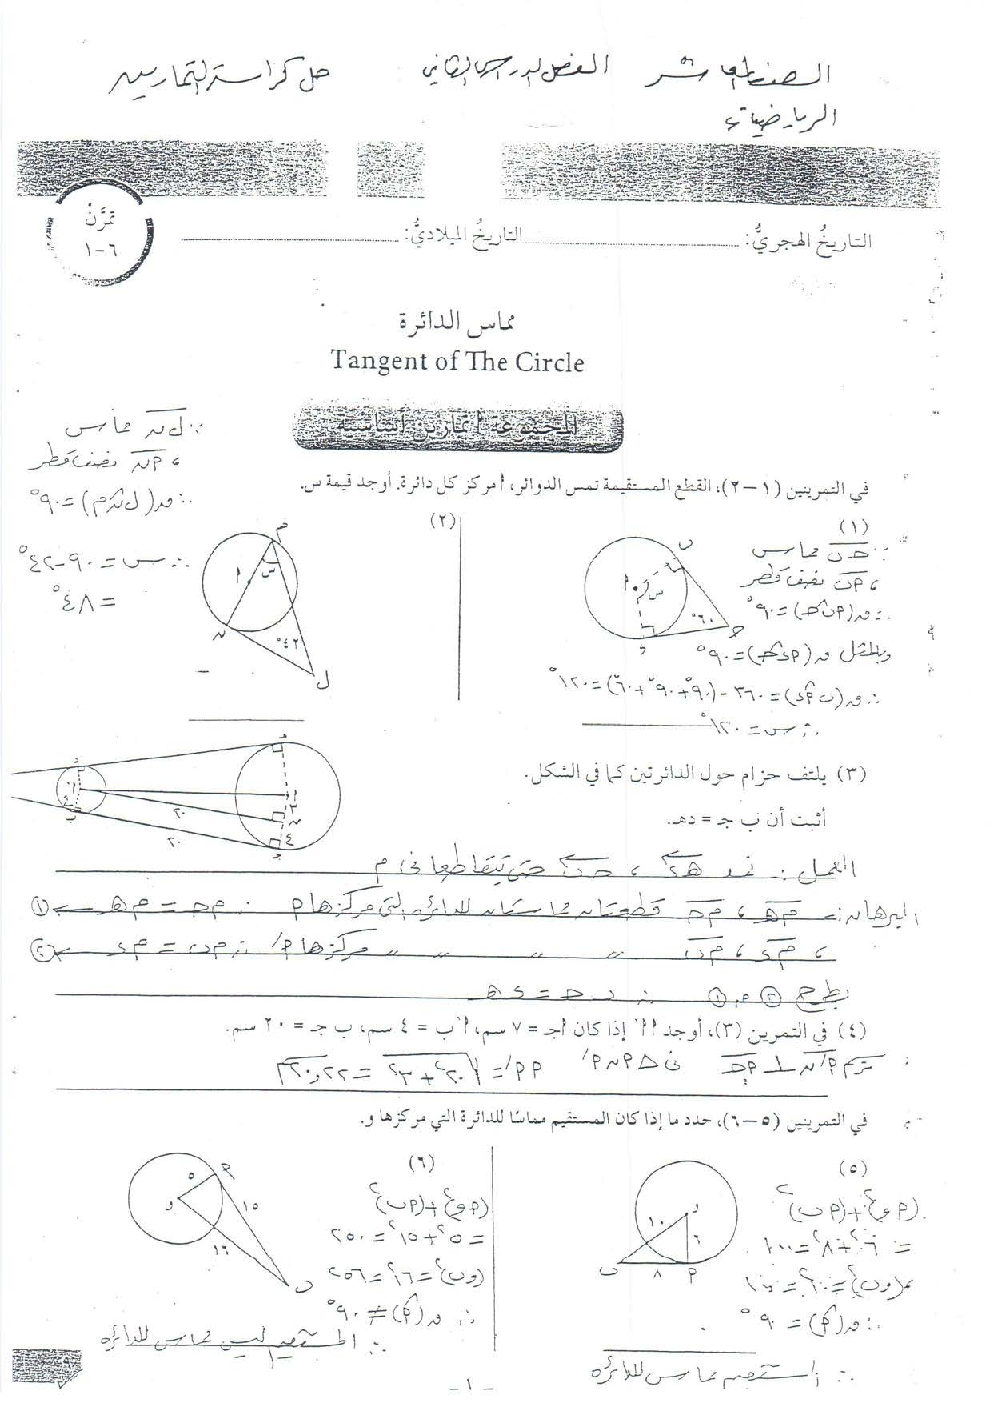 الصف العاشر الفصل الدراسي الثاني حل كراسة التمارين
الرياضيات
تمرَّنْ
٦-١
التاريخُ الهجريُّ: التاريخُ الميلاديُّ:
مماس الدائرة
Tangent of The Circle
المجموعة أ تمارين أساسية
في التمرينين (١-٢)، القطع المستقيمة تمس الدوائر، أ مركز كل دائرة. أوجد قيمة س.
(١)
∵ جـ ب مماس
، أ ب نصف قطر
∴ ق(أ ب جـ) = ٩٠°
وبالمثل ق(أ د جـ) = ٩٠°
∴ ق(ب أ د) = ٣٦٠ - (٩٠° + ٩٠° + ٦٠°) = ١٢٠°
∴ س = ١٢٠°
٦٠°
(٢)
∵ ل ن مماس
، م ن نصف قطر
∴ ق(ل ن م) = ٩٠°
∴ س = ٩٠ - ٤٢°
= ٤٨°
٤٢°
(٣) يلتف حزام حول الدائرتين كما في الشكل.
أثبت أن ب جـ = د هـ.
٢٠
٢٠
٣
٤
العمل : نمد هـ د ، جـ ب حتى يتقاطعا في م
البرهان : م هـ ، م جـ قطعتان مماستان للدائرة التي مركزها أ ∴ م جـ = م هـ ← (١)
، م د ، م ب " " " " مركزها أ/ ∴ م ب = م د ← (٢)
بطرح (٢) من (١) ∴ ب جـ = د هـ
(٤) في التمرين (٣)، أوجد أ أ/ إذا كان أ جـ = ٧ سم، أ/ ب = ٤ سم، ب جـ = ٢٠ سم.
نرسم أ/ن ⊥ أ جـ في Δ أ ن أ/ أ أ/ = √٢٠² + ٣² = ٢٠,٢٢٣
في التمرينين (٥-٦)، حدد ما إذا كان المستقيم مماسًا للدائرة التي مركزها و.
(٥)
(أ و)² + (أ ب)²
= ٦² + ٨² = ١٠٠
، (و ب)² = ١٠² = ١٠٠
∴ ق(أ) = ٩٠°
∴ المستقيم مماس للدائرة
١٠
٦
٨
(٦)
(أ و)² + (أ ب)²
= ٥² + ١٥² = ٢٥٠
(و ب)² = ١٦² = ٢٥٦
∴ ق(أ) ≠ ٩٠°
∴ المستقيم ليس مماس للدائرة
٥
١٥
١٦
- ١ -